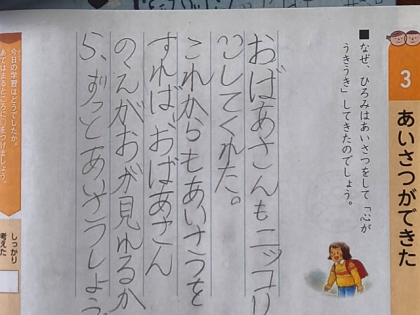 3 あいさつができた
■なぜ、ひろみはあいさつをして「心が
うきうき」してきたのでしょう。
おばあさんもニッコリ
してくれた。
これからもあいさつを
すれば、おばあさん
のえがおが見れるか
ら、ずっとあいさつしよう
今日の学習はどうでしたか。
あてはまるところに○をつけましょう。
しっかり
考えた